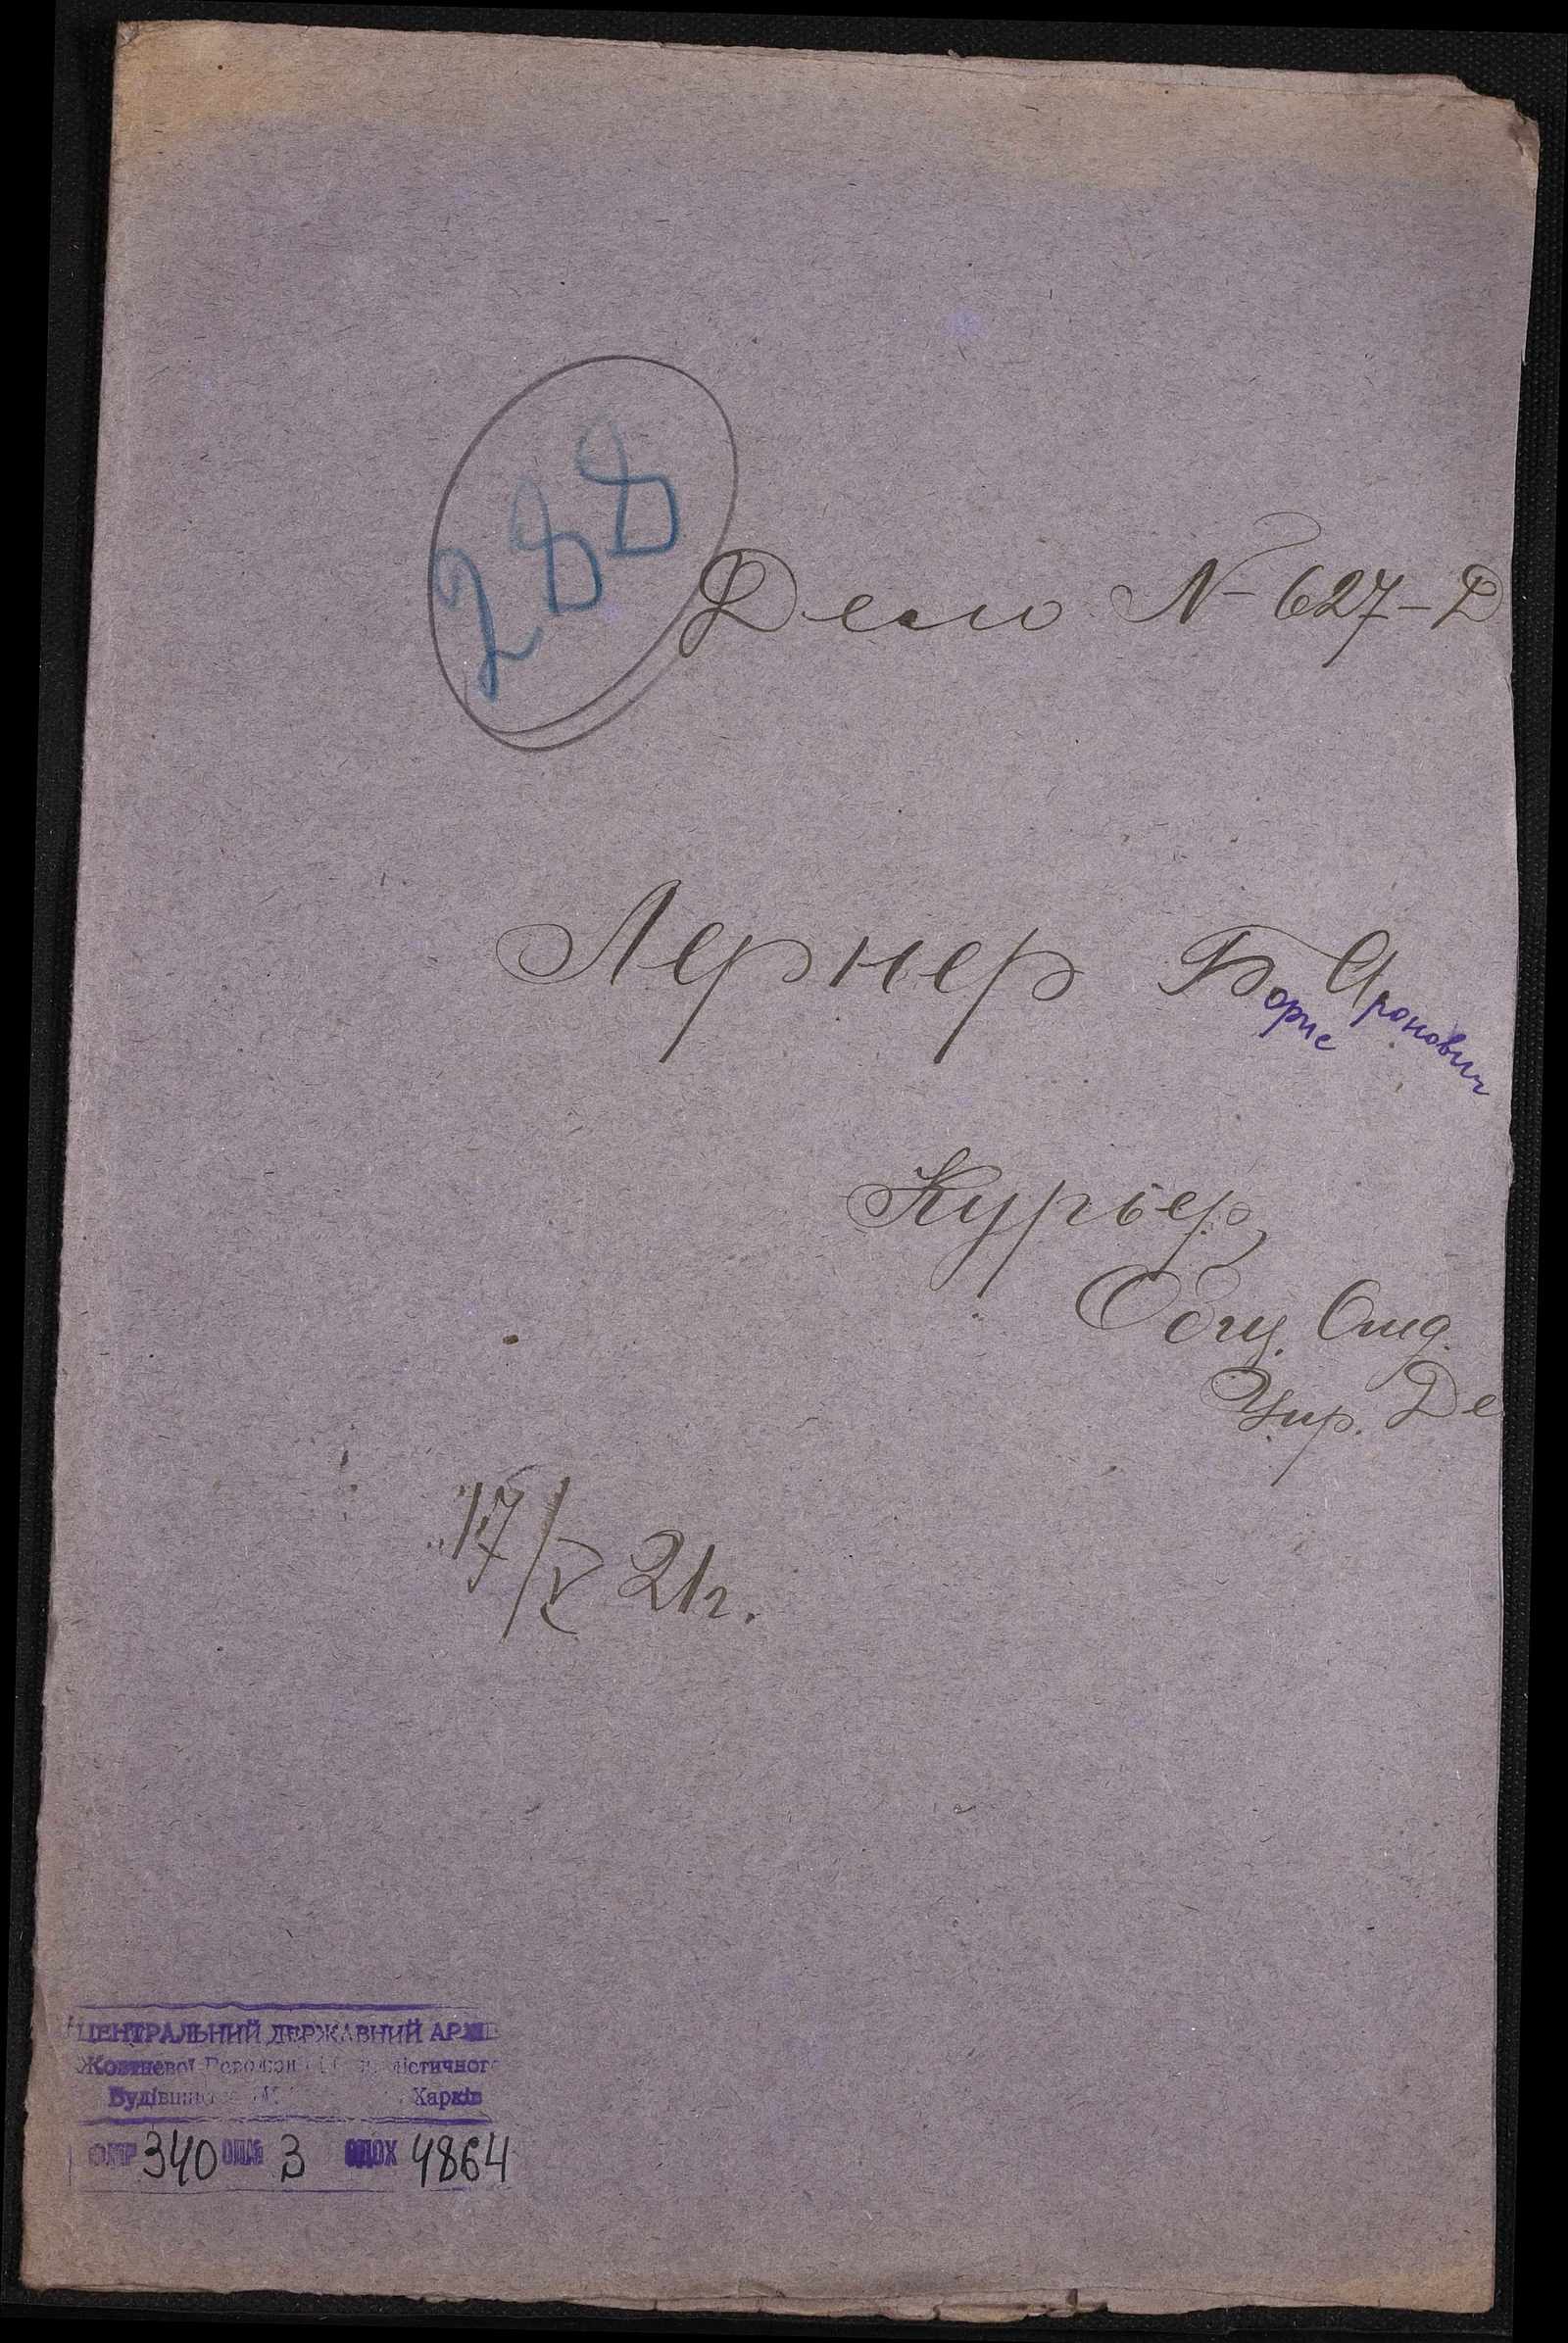 288
Дело № 627-Д
Лернер Борис Аронович
Курьер
Общ. Отд.
Упр. Де
17/V 21 г.
ЦЕНТРАЛЬНИЙ ДЕРЖАВНИЙ АРХІВ
Жовтневої Революції і Соціалістичного
Будівництва Харків
ФНР 340 ОПИС 3 ОДОХ 4864